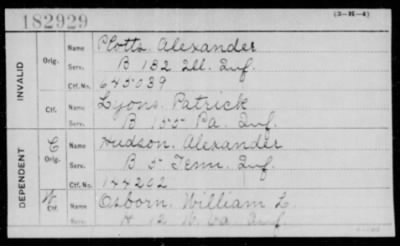 182929
(3-H-4)
INVALID
Orig.
Name Plotts. Alexander
Serv. B 132 Ill. Inf.
Ctf. No. 645039
Ctf.
Name Lyons. Patrick
Serv. B 155 Pa. Inf.
DEPENDENT
C
Orig.
Name Hudson. Alexander
Serv. B 5 Tenn. Inf.
Ctf. No. 144202
W
Ctf.
Name Osborn. William L.
Serv. H 12 W. Va Inf.